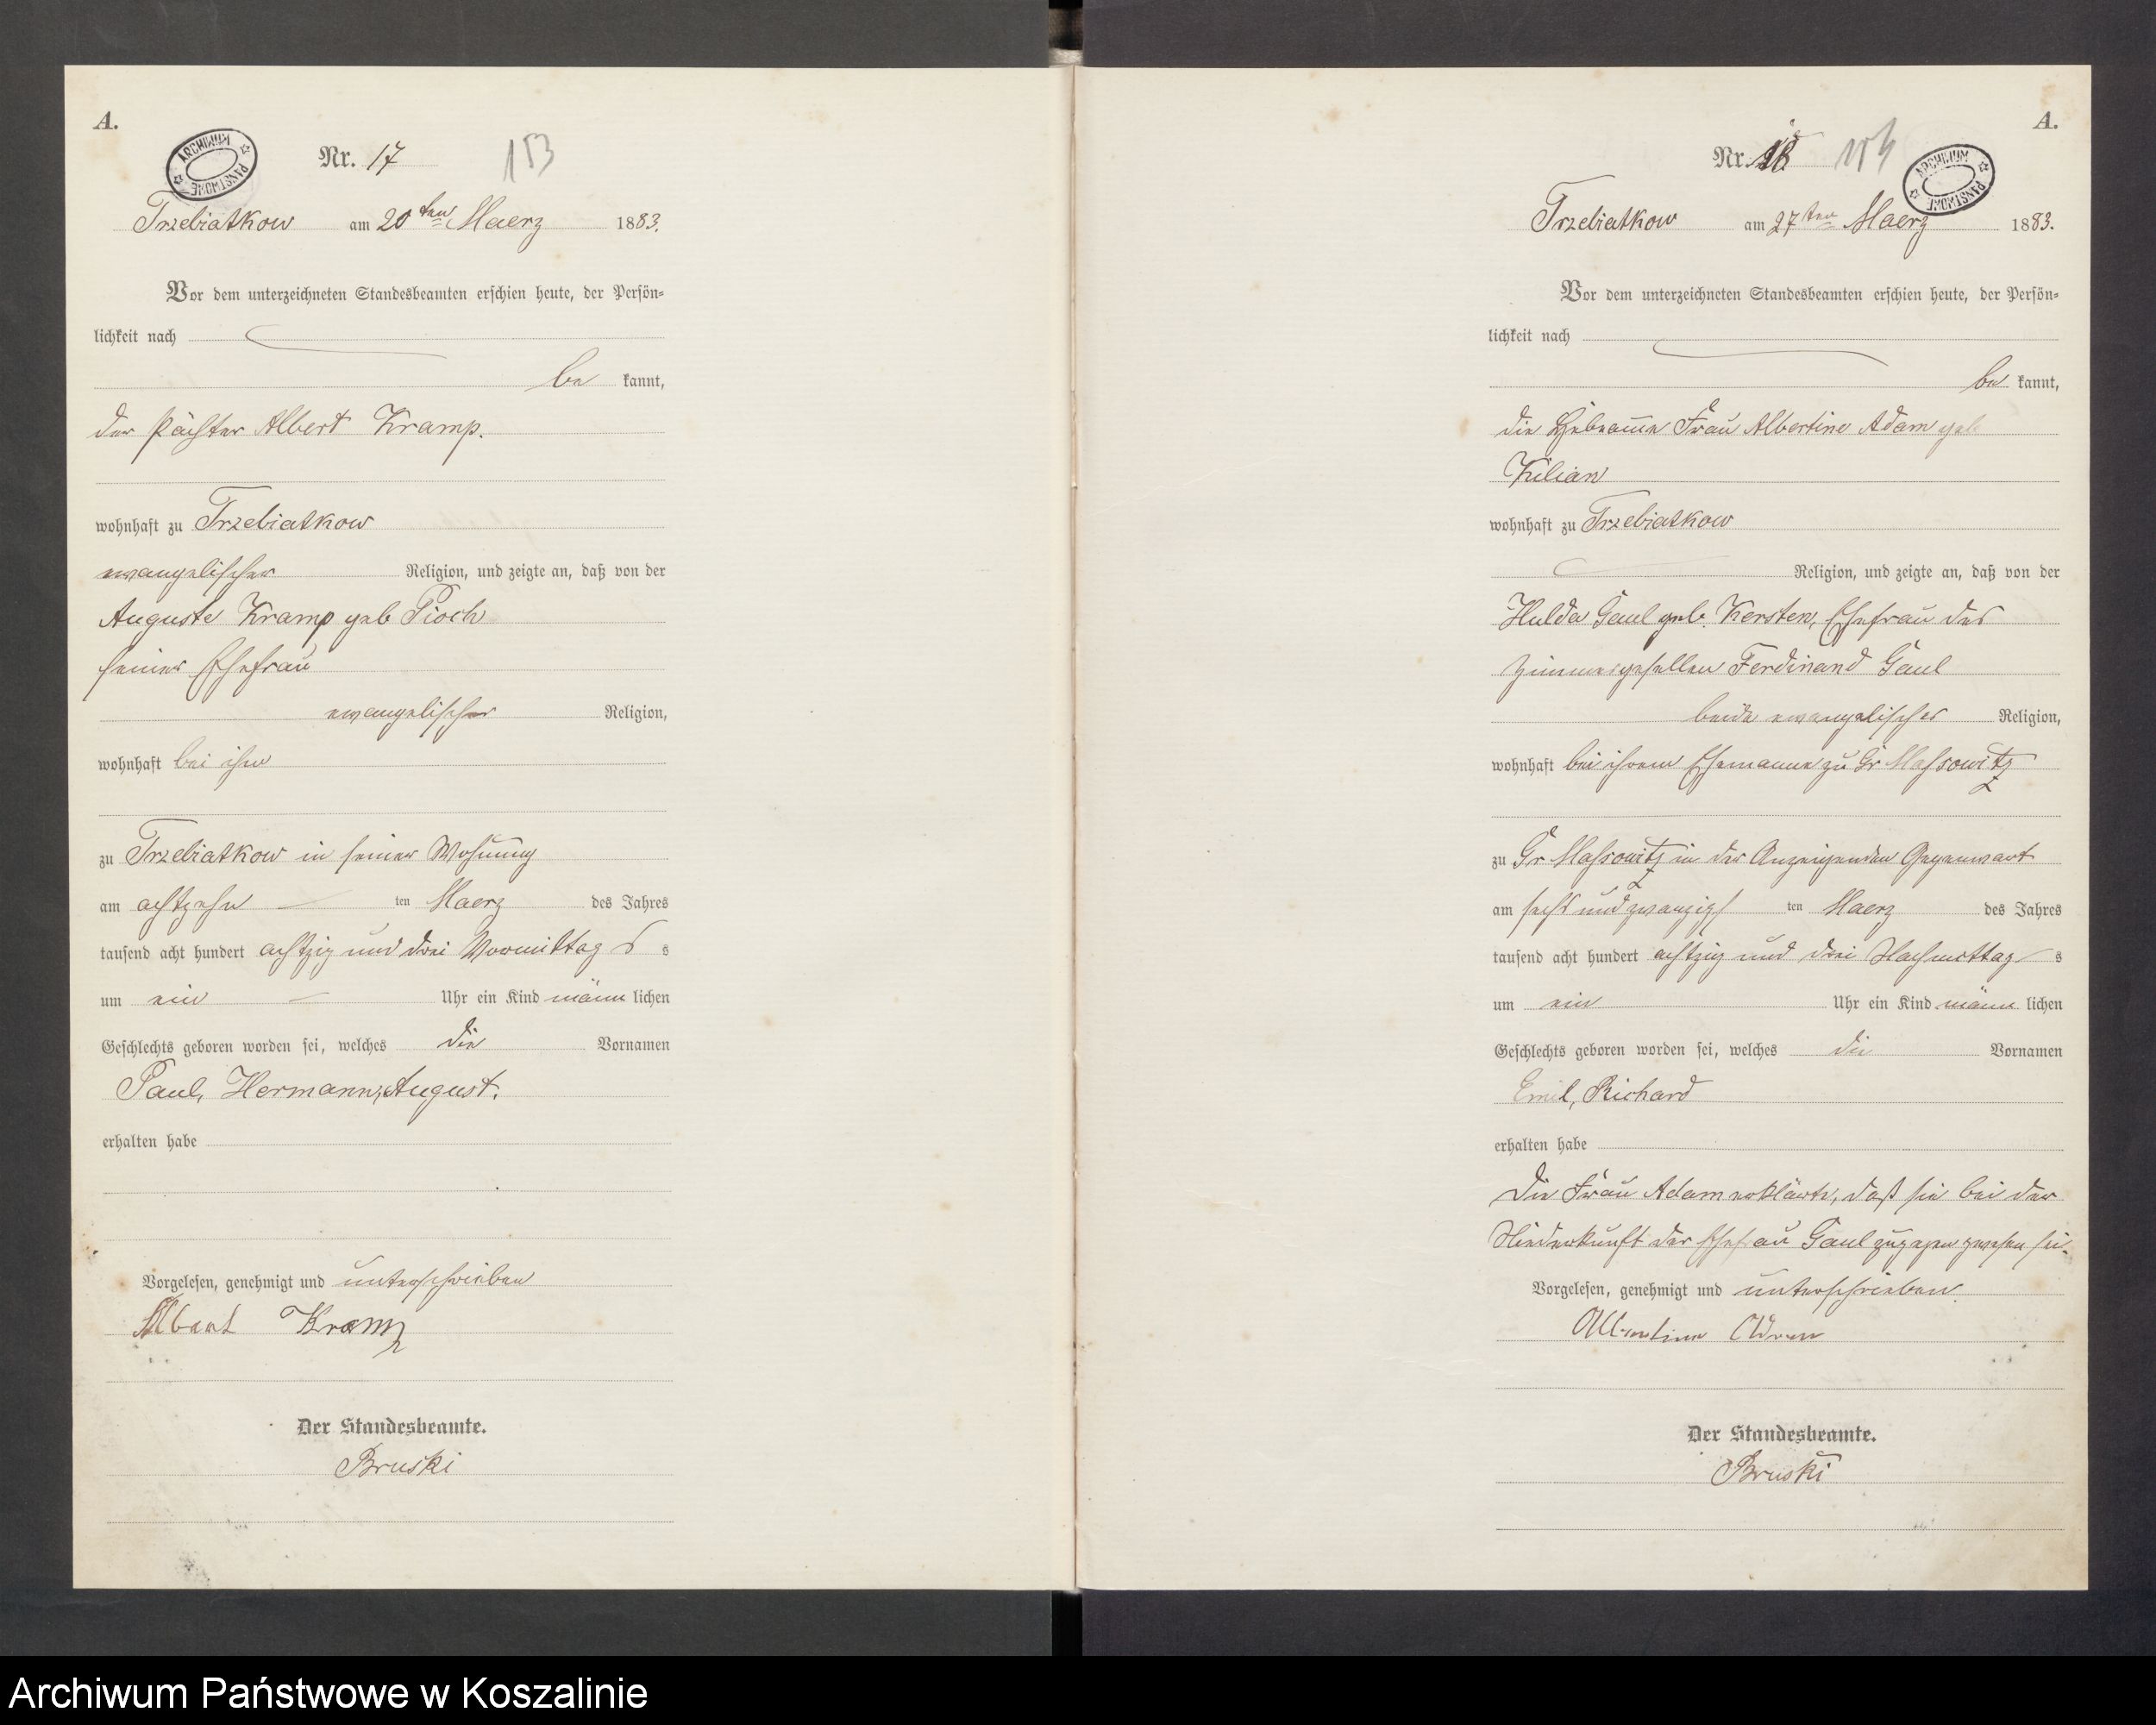 A.
ARCHIWUM PAŃSTWOWE
Nr. 17 153
Trzebiatkow am 20ten Maerz 1883.
Vor dem unterzeichneten Standesbeamten erschien heute, der Persön=
lichkeit nach
be kannt,
der Pächter Albert Kramp.
wohnhaft zu Trzebiatkow
evangelischer Religion, und zeigte an, daß von der
Auguste Kramp geb Pioch
seiner Ehefrau
evangelischer Religion,
wohnhaft bei ihm
zu Trzebiatkow in seiner Wohnung
am achtzehn ten Maerz des Jahres
tausend acht hundert achtzig und drei Vormittags s
um ein Uhr ein Kind männ lichen
Geschlechts geboren worden sei, welches die Vornamen
Paul, Hermann, August.
erhalten habe
Vorgelesen, genehmigt und unterschrieben
Albert Kramp
Der Standesbeamte.
Bruski
A.
ARCHIWUM PAŃSTWOWE
Nr. 18 154
Trzebiatkow am 27ten Maerz 1883.
Vor dem unterzeichneten Standesbeamten erschien heute, der Persön=
lichkeit nach
be kannt,
die Hebeamme Frau Albertine Adam geb
Kilian
wohnhaft zu Trzebiatkow
Religion, und zeigte an, daß von der
Hulda Gaul geb. Kersten, Ehefrau des
Zimmergesellen Ferdinand Gaul
beide evangelischer Religion,
wohnhaft bei ihrem Ehemanne zu Gr Massowitz
zu Gr Massowitz in der Anzeigenden Gegenwart
am sechs und zwanzigs ten Maerz des Jahres
tausend acht hundert achtzig und drei Nachmittag s
um ein Uhr ein Kind männ lichen
Geschlechts geboren worden sei, welches die Vornamen
Emil, Richard
erhalten habe
Die Frau Adam erklärte, daß sie bei der
Niederkunft der Ehefrau Gaul zugegen gewesen sei.
Vorgelesen, genehmigt und unterschrieben
Albertine Adam
Der Standesbeamte.
Bruski
Archiwum Państwowe w Koszalinie